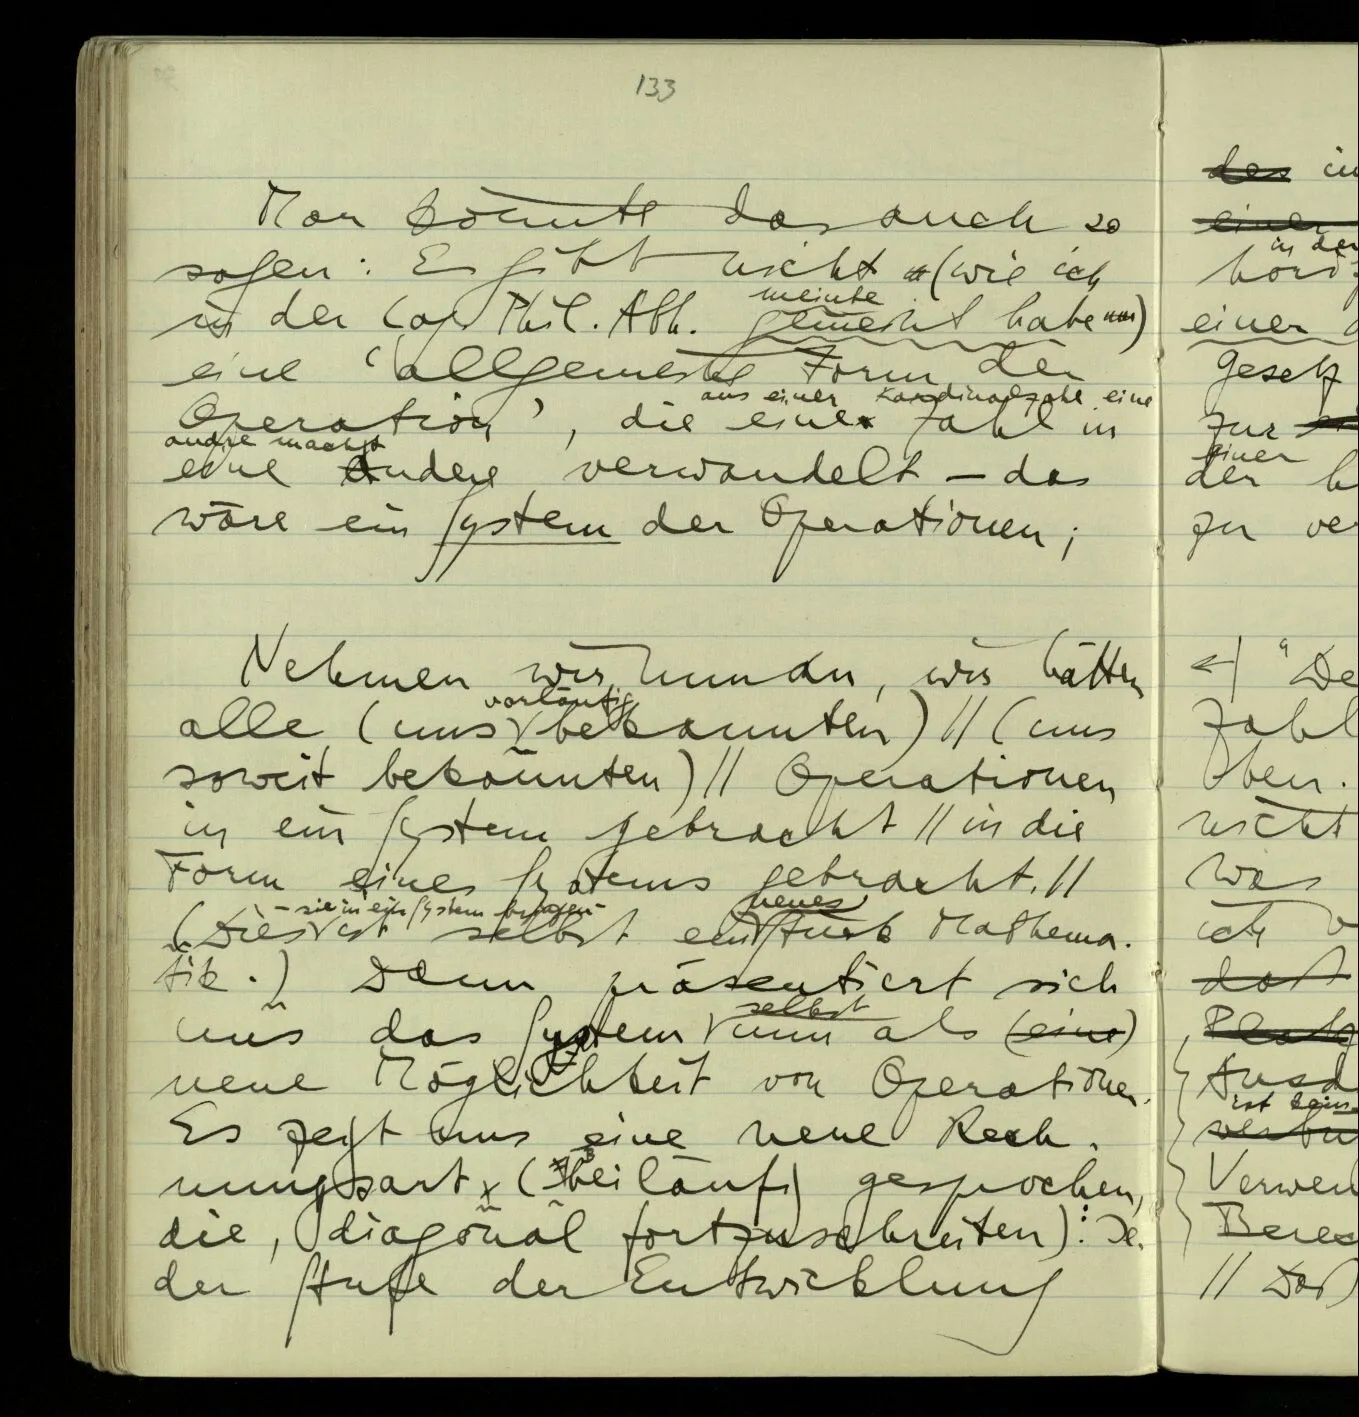 133
Man könnte das auch so
sagen: Es gibt nicht (wie ich
in der Log. Phil. Abh. gemeint habe)
meinte
eine 'allgemeine Form der
Operation', die eine Zahl in
aus einer Kardinalzahl eine
andre macht
eine andere verwandelt – das
wäre ein System der Operationen;
Nehmen wir nun an, wir hätten
alle (uns bekannten) // (uns
vorläufig
soweit bekannten) // Operationen
in ein System gebracht // in die
Form eines Systems gebracht. //
– sie in ein System bringen –
neues
(Dies ist selbst ein Stück Mathema-
tik.) Dann präsentiert sich
uns das System nun als (eine)
selbst
neue Möglichkeit von Operationen.
Es zeigt uns eine neue Rech-
nungsart, (beiläufig gesprochen,
die, diagonal fortzuschreiten): Je-
der Stufe der Entwicklung
des in
einer
in der
einer
Gesetz
zur
einer
der
zu ver
"De
Zahl
oben.
nicht
was
ich
das
Ausd
ist kein
Verwen
Berec
// Daß